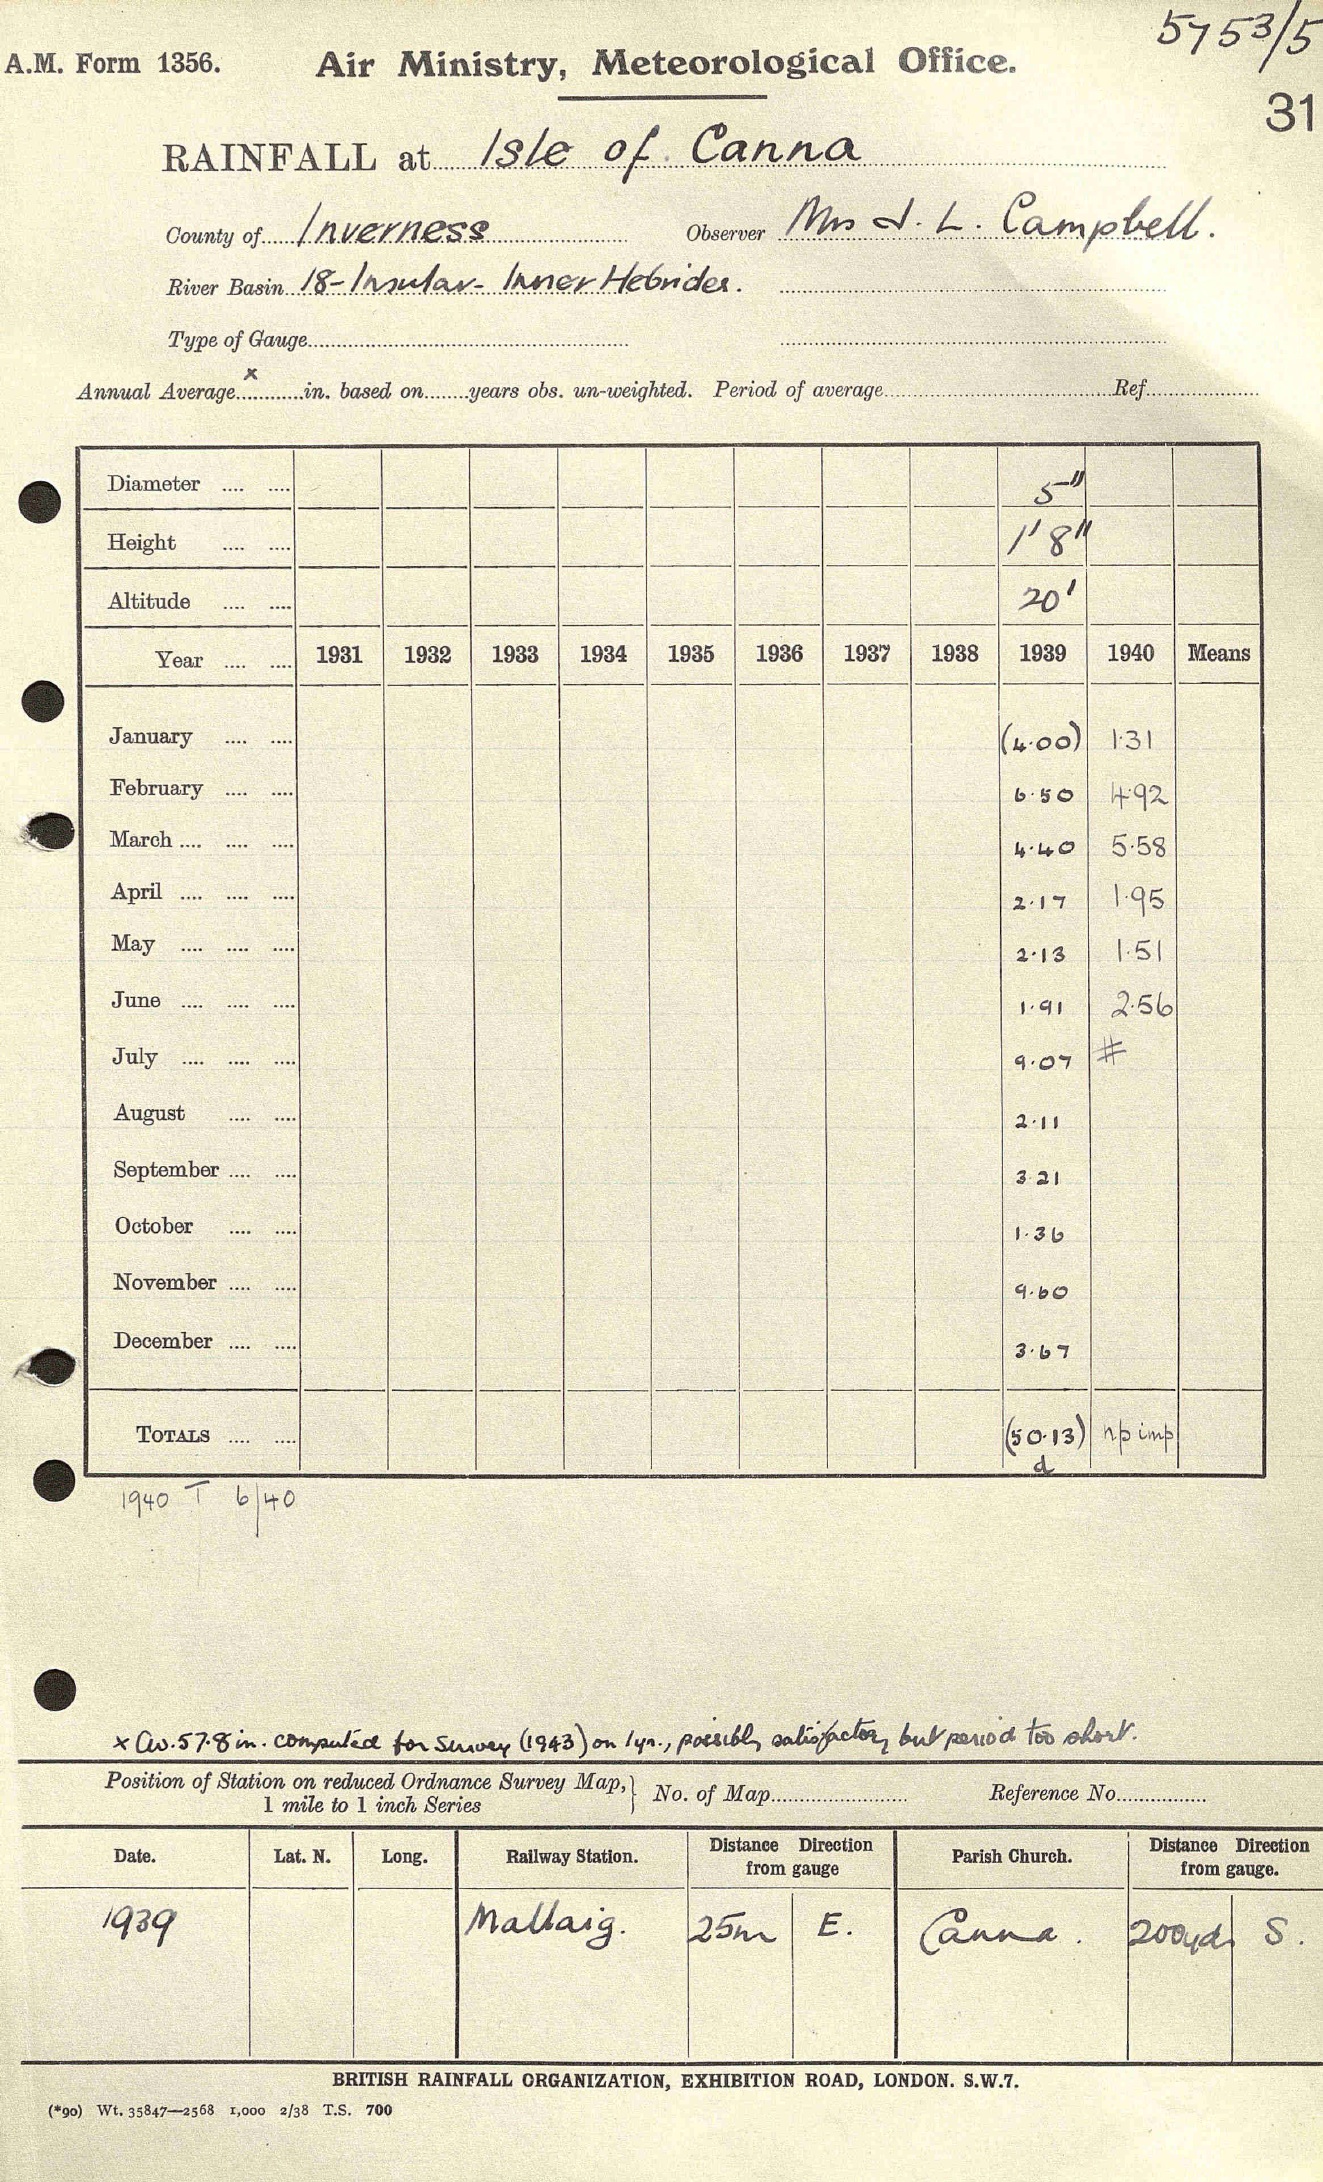 5753/5
A.M. Form 1356. Air Ministry, Meteorological Office.
31
RAINFALL at Isle of Canna
County of Inverness Observer Mrs J. L. Campbell.
River Basin 18-Insular- Inner Hebrides.
Type of Gauge
Annual Average x in. based on years obs. un-weighted. Period of average Ref
Diameter .... .... 5"
Height .... .... 1' 8"
Altitude .... .... 20'
Year .... .... 1931 1932 1933 1934 1935 1936 1937 1938 1939 1940 Means
January .... .... (4.00) 1.31
February .... .... 6.50 4.92
March .... .... .... 4.40 5.58
April .... .... .... 2.17 1.95
May .... .... .... 2.13 1.51
June .... .... .... 1.91 2.56
July .... .... .... 9.07 #
August .... .... 2.11
September .... .... 3.21
October .... .... 1.36
November .... .... 9.60
December .... .... 3.67
TOTALS .... .... (50.13) np imp
d
1940 T 6/40
x Av. 57.8 in. computed for Survey (1943) on 1 yr., possibly satisfactory but period too short.
Position of Station on reduced Ordnance Survey Map,} No. of Map Reference No
1 mile to 1 inch Series
Date. Lat. N. Long. Railway Station. Distance Direction from gauge Parish Church. Distance Direction from gauge.
1939 Mallaig. 25m E. Canna. 200yds S.
BRITISH RAINFALL ORGANIZATION, EXHIBITION ROAD, LONDON. S.W.7.
(*90) Wt. 35847—2568 1,000 2/38 T.S. 700